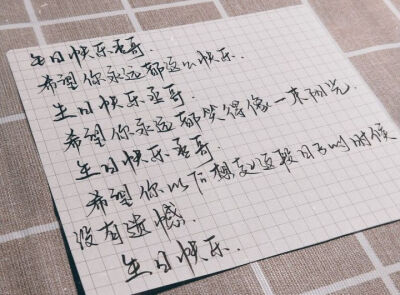 生日快乐丞哥.
希望你永远都这么快乐.
生日快乐丞哥.
希望你永远都笑得像一束阳光.
生日快乐丞哥.
希望你以后想起这段日子的时候
没有遗憾.
生日快乐.